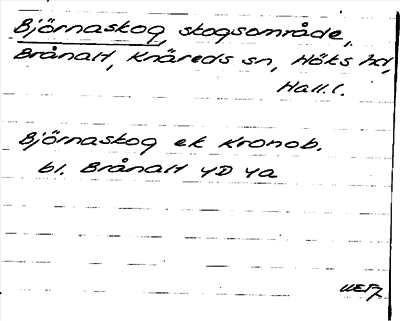 Björnaskog, skogsområde,
Brånalt, Knäreds sn, Höks hd,
Hall. l.
Björnaskog ek Kronob.
bl. Brånalt 4D 4a